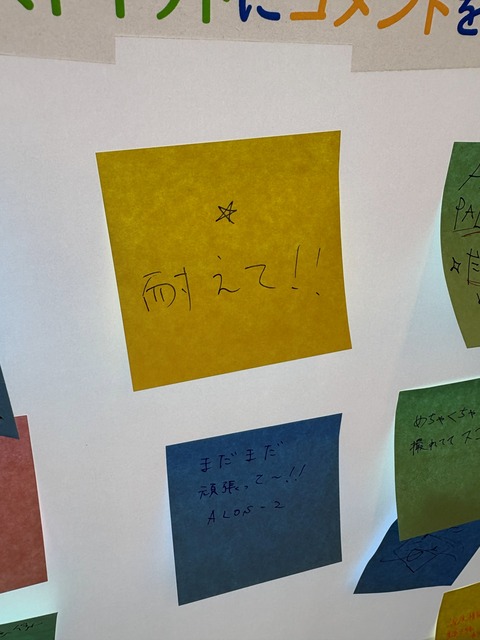 にコメントを
耐えて!!
まだまだ
頑張って〜!!
ALOS-2
めちゃくちゃ
撮れてて